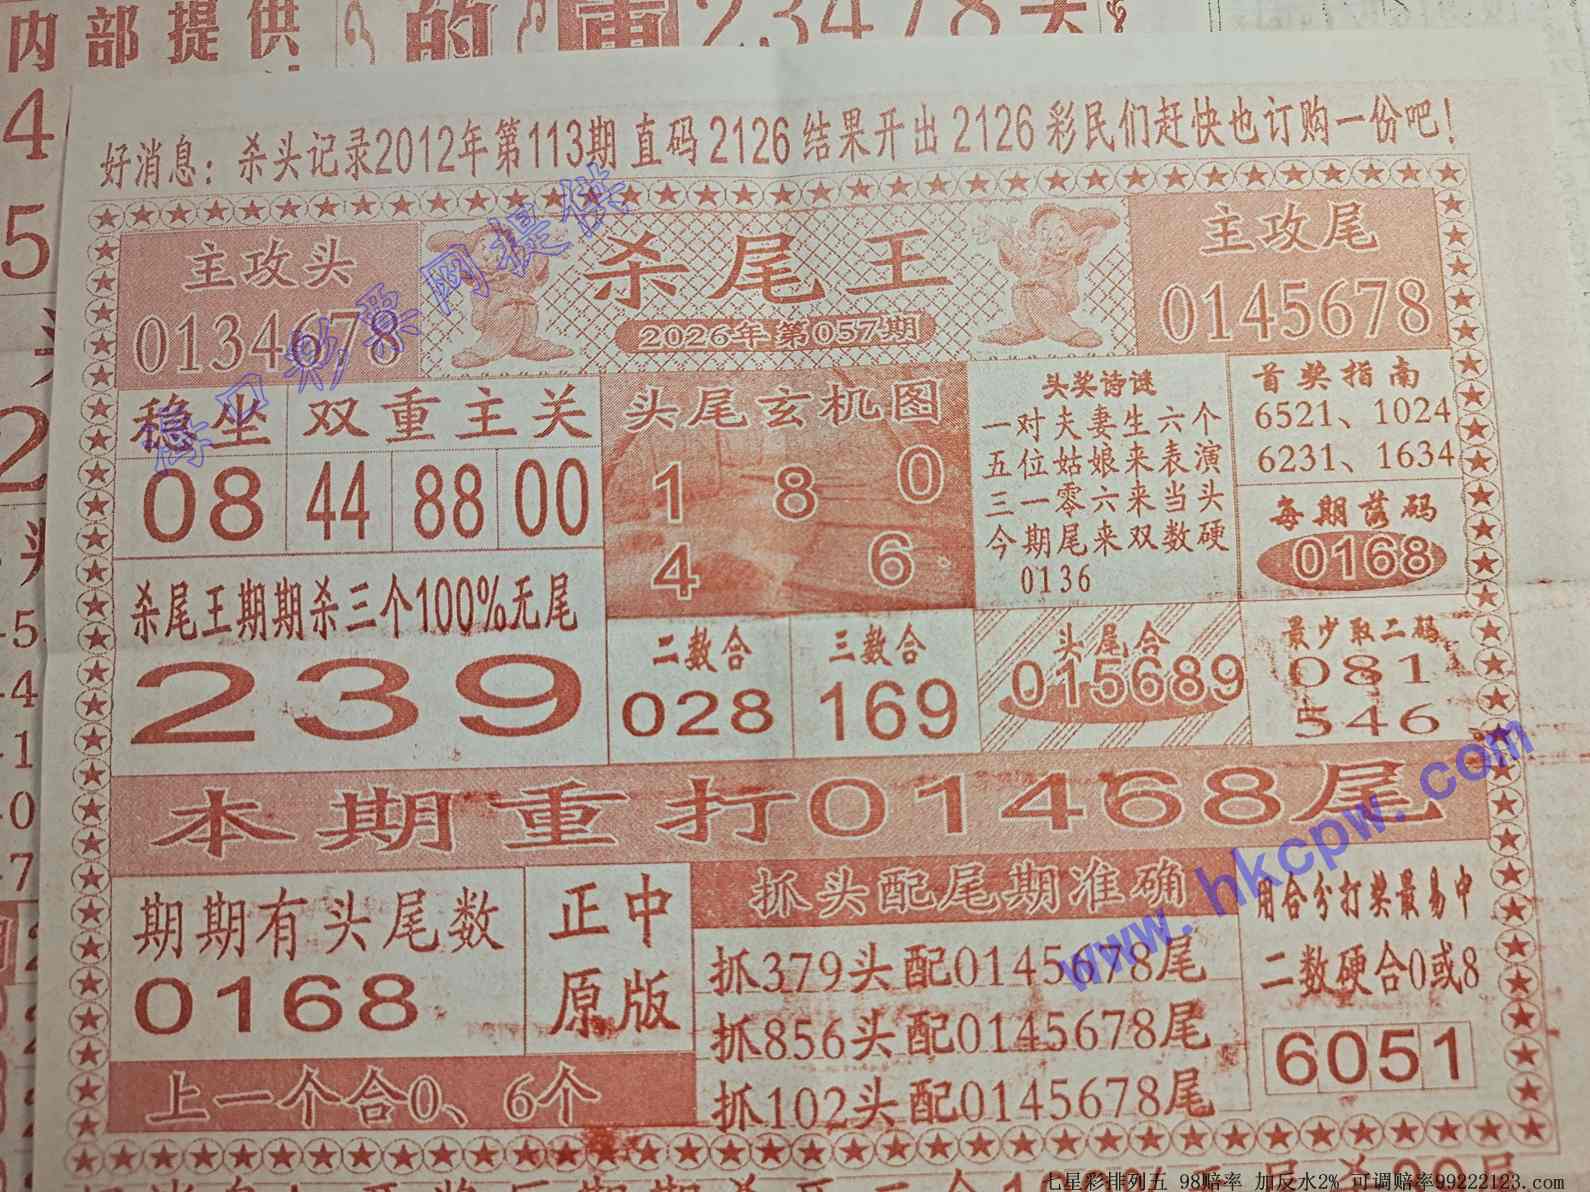 内部提供
的
23478头
4
5
2
好消息：杀头记录2012年第113期直码2126结果开出2126彩民们赶快也订购一份吧！
主攻头
0134678
杀尾王
2026年第057期
主攻尾
0145678
海口彩票网提供
稳坐
08
双重主关
44 88 00
头尾玄机图
1 8 0
4 6
头奖诗谜
一对夫妻生六个
五位姑娘来表演
三一零六来当头
今期尾来双数硬
0136
首奖指南
6521、1024
6231、1634
每期落码
0168
杀尾王期期杀三个100%无尾
239
二数合
028
三数合
169
头尾合
015689
最少取二码
081
546
本期重打01468尾
期期有头尾数
0168
正中
原版
上一个合0、6个
抓头配尾期准确
抓379头配0145678尾
抓856头配0145678尾
抓102头配0145678尾
用合分打奖最易中
二数硬合0或8
6051
www.hkcpw.com
七星彩排列五 98赔率 加反水2% 可调赔率99222123.com